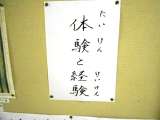 体験と経験
たいけん
けいけん